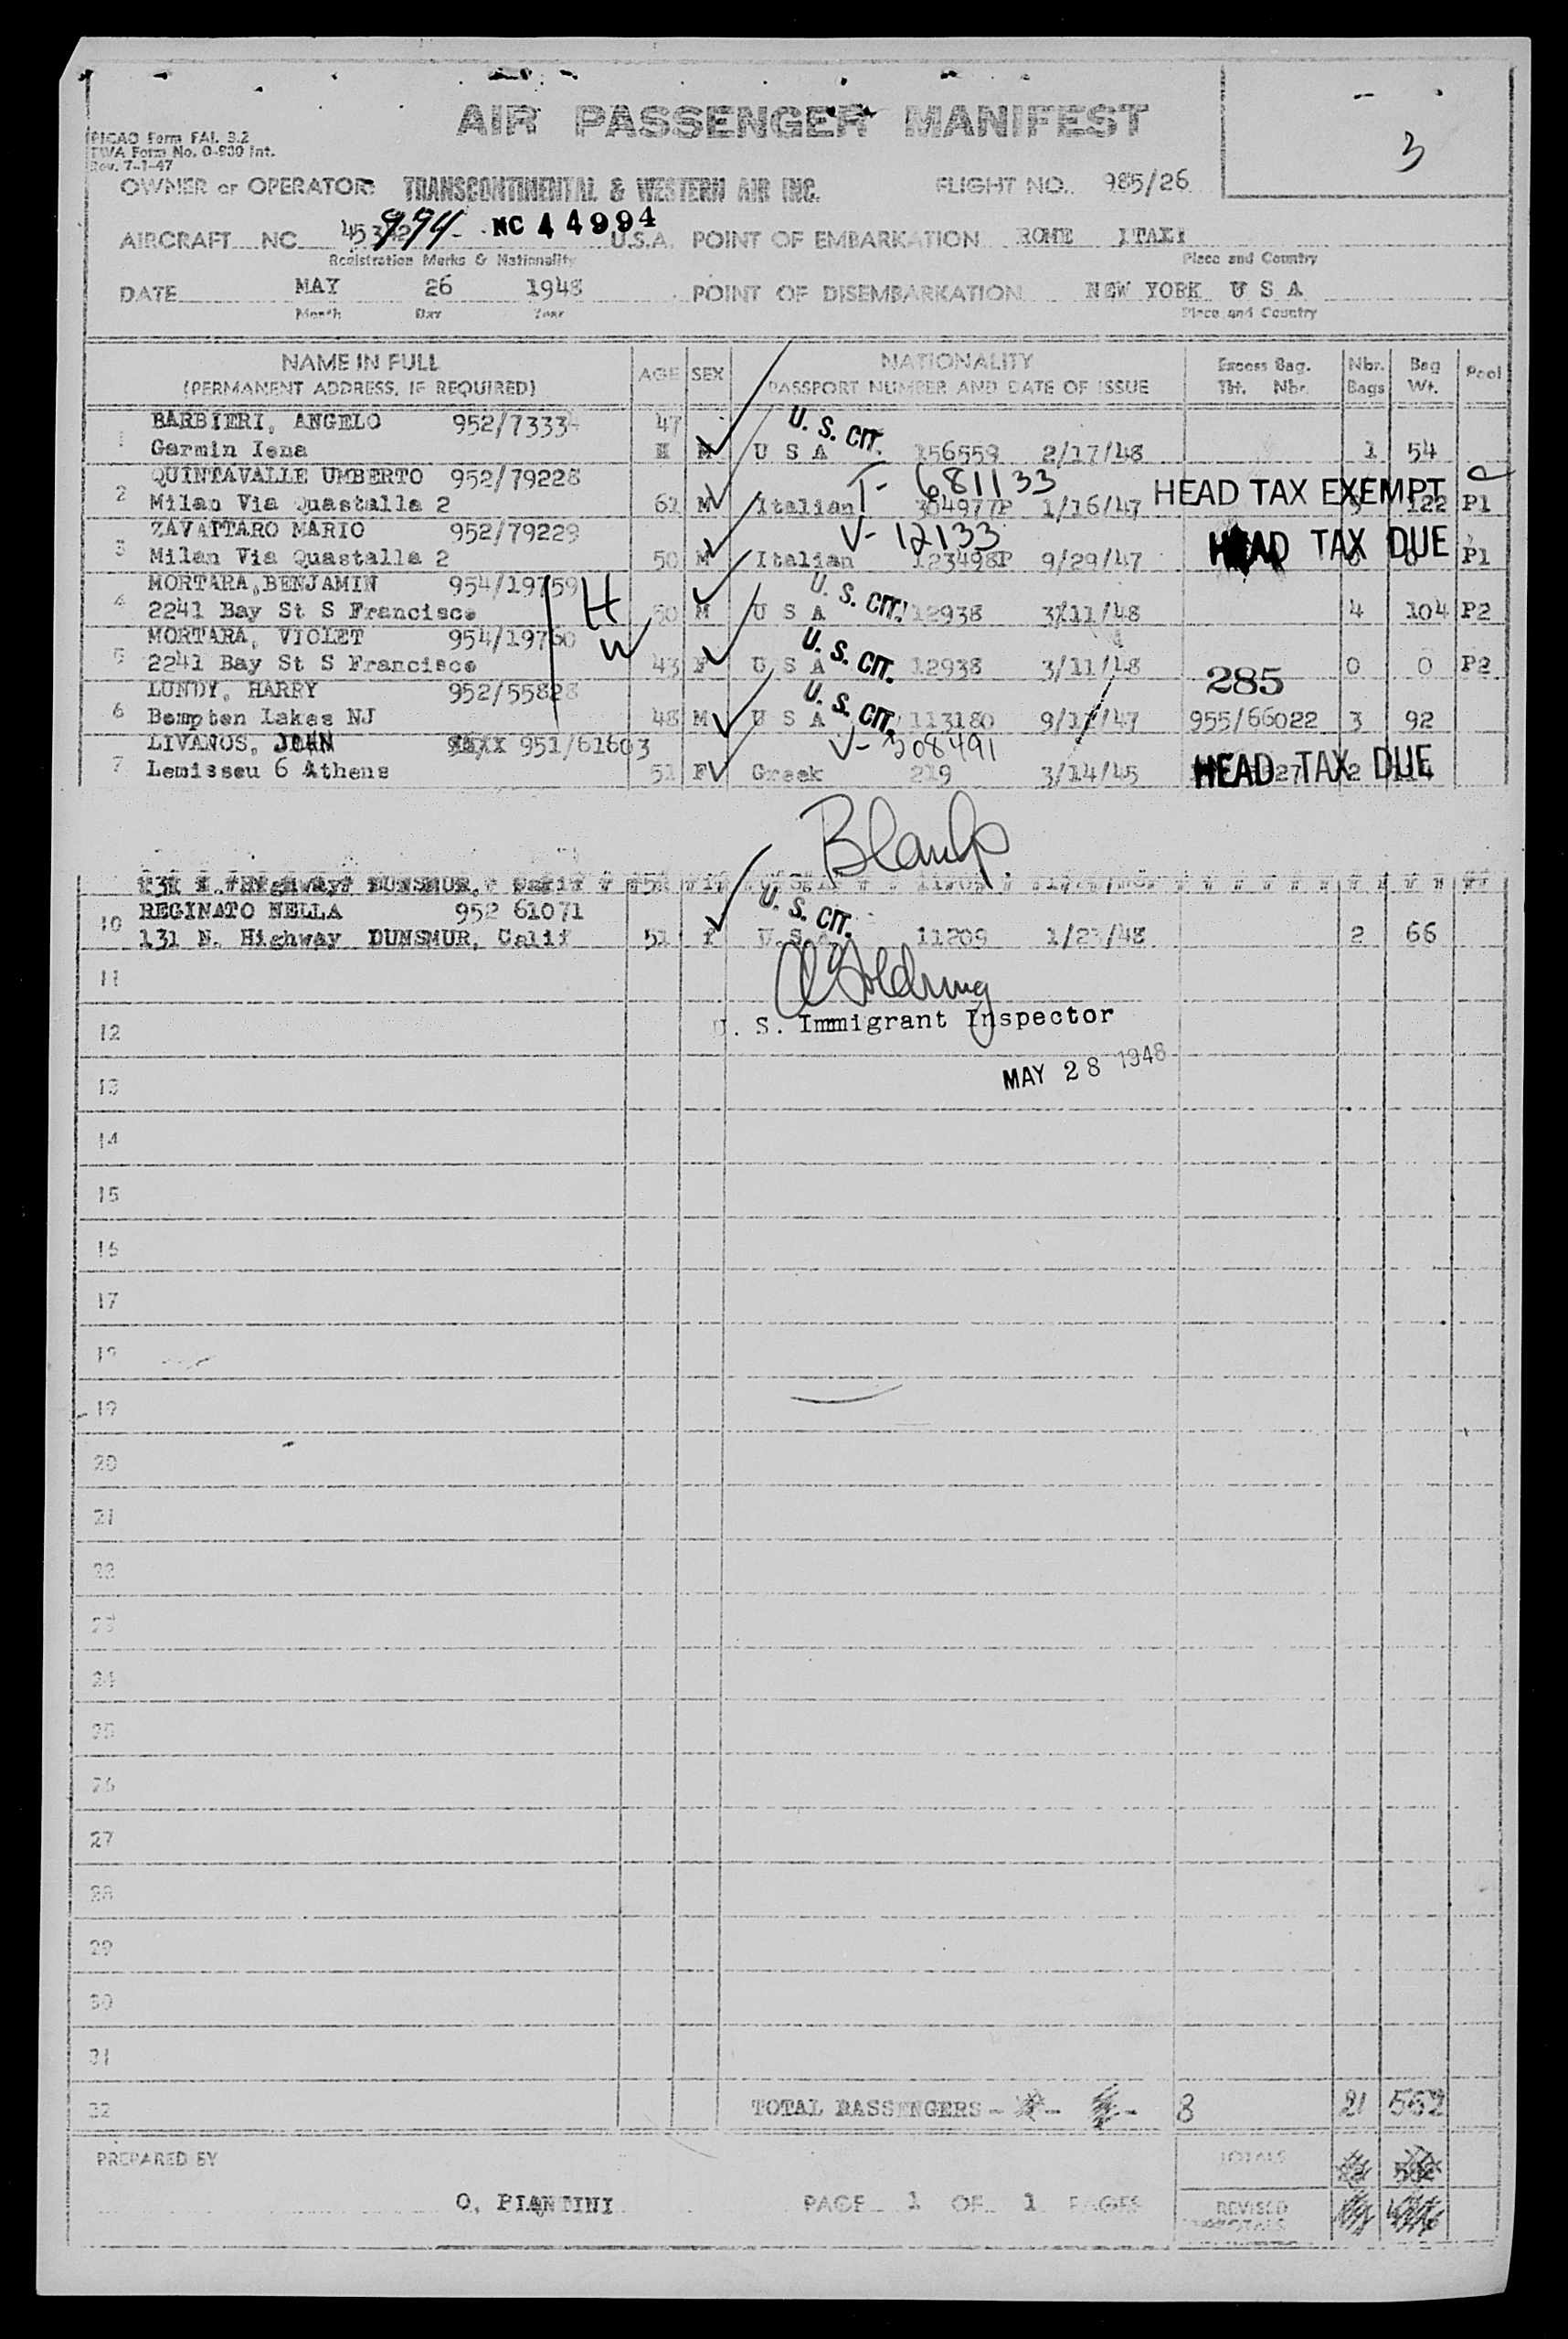 AIR PASSENGER MANIFEST
PICAO Form FAL 3.2
TWA Form No. 0-930 Int.
Rev. 7-1-47
3
OWNER or OPERATOR: TRANSCONTINENTAL & WESTERN AIR INC. FLIGHT NO. 985/26
AIRCRAFT NC 994 NC 44994 U.S.A. POINT OF EMBARKATION ROME ITALY
Registration Marks & Nationality Place and Country
DATE MAY 26 1948 POINT OF DISEMBARKATION NEW YORK U S A
Month Day Year Place and Country
NAME IN FULL AGE SEX NATIONALITY Excess Bag. Nbr. Bag Pool
(PERMANENT ADDRESS, IF REQUIRED) PASSPORT NUMBER AND DATE OF ISSUE Tkt. Nbr. Bags Wt.
1 BARBIERI, ANGELO 952/7333 47 U. S. CIT.
Garmin Iena M M U S A 156559 2/17/48 1 54
QUINTAVALLE UMBERTO 952/79228 T- 681133 HEAD TAX EXEMPT
2 Milan Via Quastalla 2 61 M Italian 304977P 1/16/47 122 P1
ZAVATTARO MARIO 952/79229 V- 12133 HEAD TAX DUE
3 Milan Via Quastalla 2 50 M Italian 123498P 9/29/47 0 0 P1
MORTARA, BENJAMIN 954/19759 H U. S. CIT.
4 2241 Bay St S Francisco 50 M U S A 12938 3/11/48 4 104 P2
MORTARA, VIOLET 954/19760 W U. S. CIT.
5 2241 Bay St S Francisco 43 F U S A 12938 3/11/48 0 0 P2
LUNDY, HARRY 952/55828 U. S. CIT. 285
6 Bompton Lakes NJ 48 M U S A 113180 9/17/47 955/66022 3 92
LIVANOS, JOHN 951/61603 V- 208491
7 Lemissou 6 Athens 51 F Greek 219 3/14/45 HEAD TAX DUE 2
Blanks
REGINATO NELLA 952 61071 U. S. CIT.
10 131 N. Highway DUNSMUR, Calif 51 F U.S.A. 11209 1/23/48 2 66
11
12 U. S. Immigrant Inspector
13 MAY 28 1948
14
15
16
17
18
19
20
21
22
23
24
25
26
27
28
29
30
31
32 TOTAL PASSENGERS - 8 21 552
PREPARED BY TOTALS
O. PIANTINI PAGE 1 OF 1 PAGES REVISED TOTALS